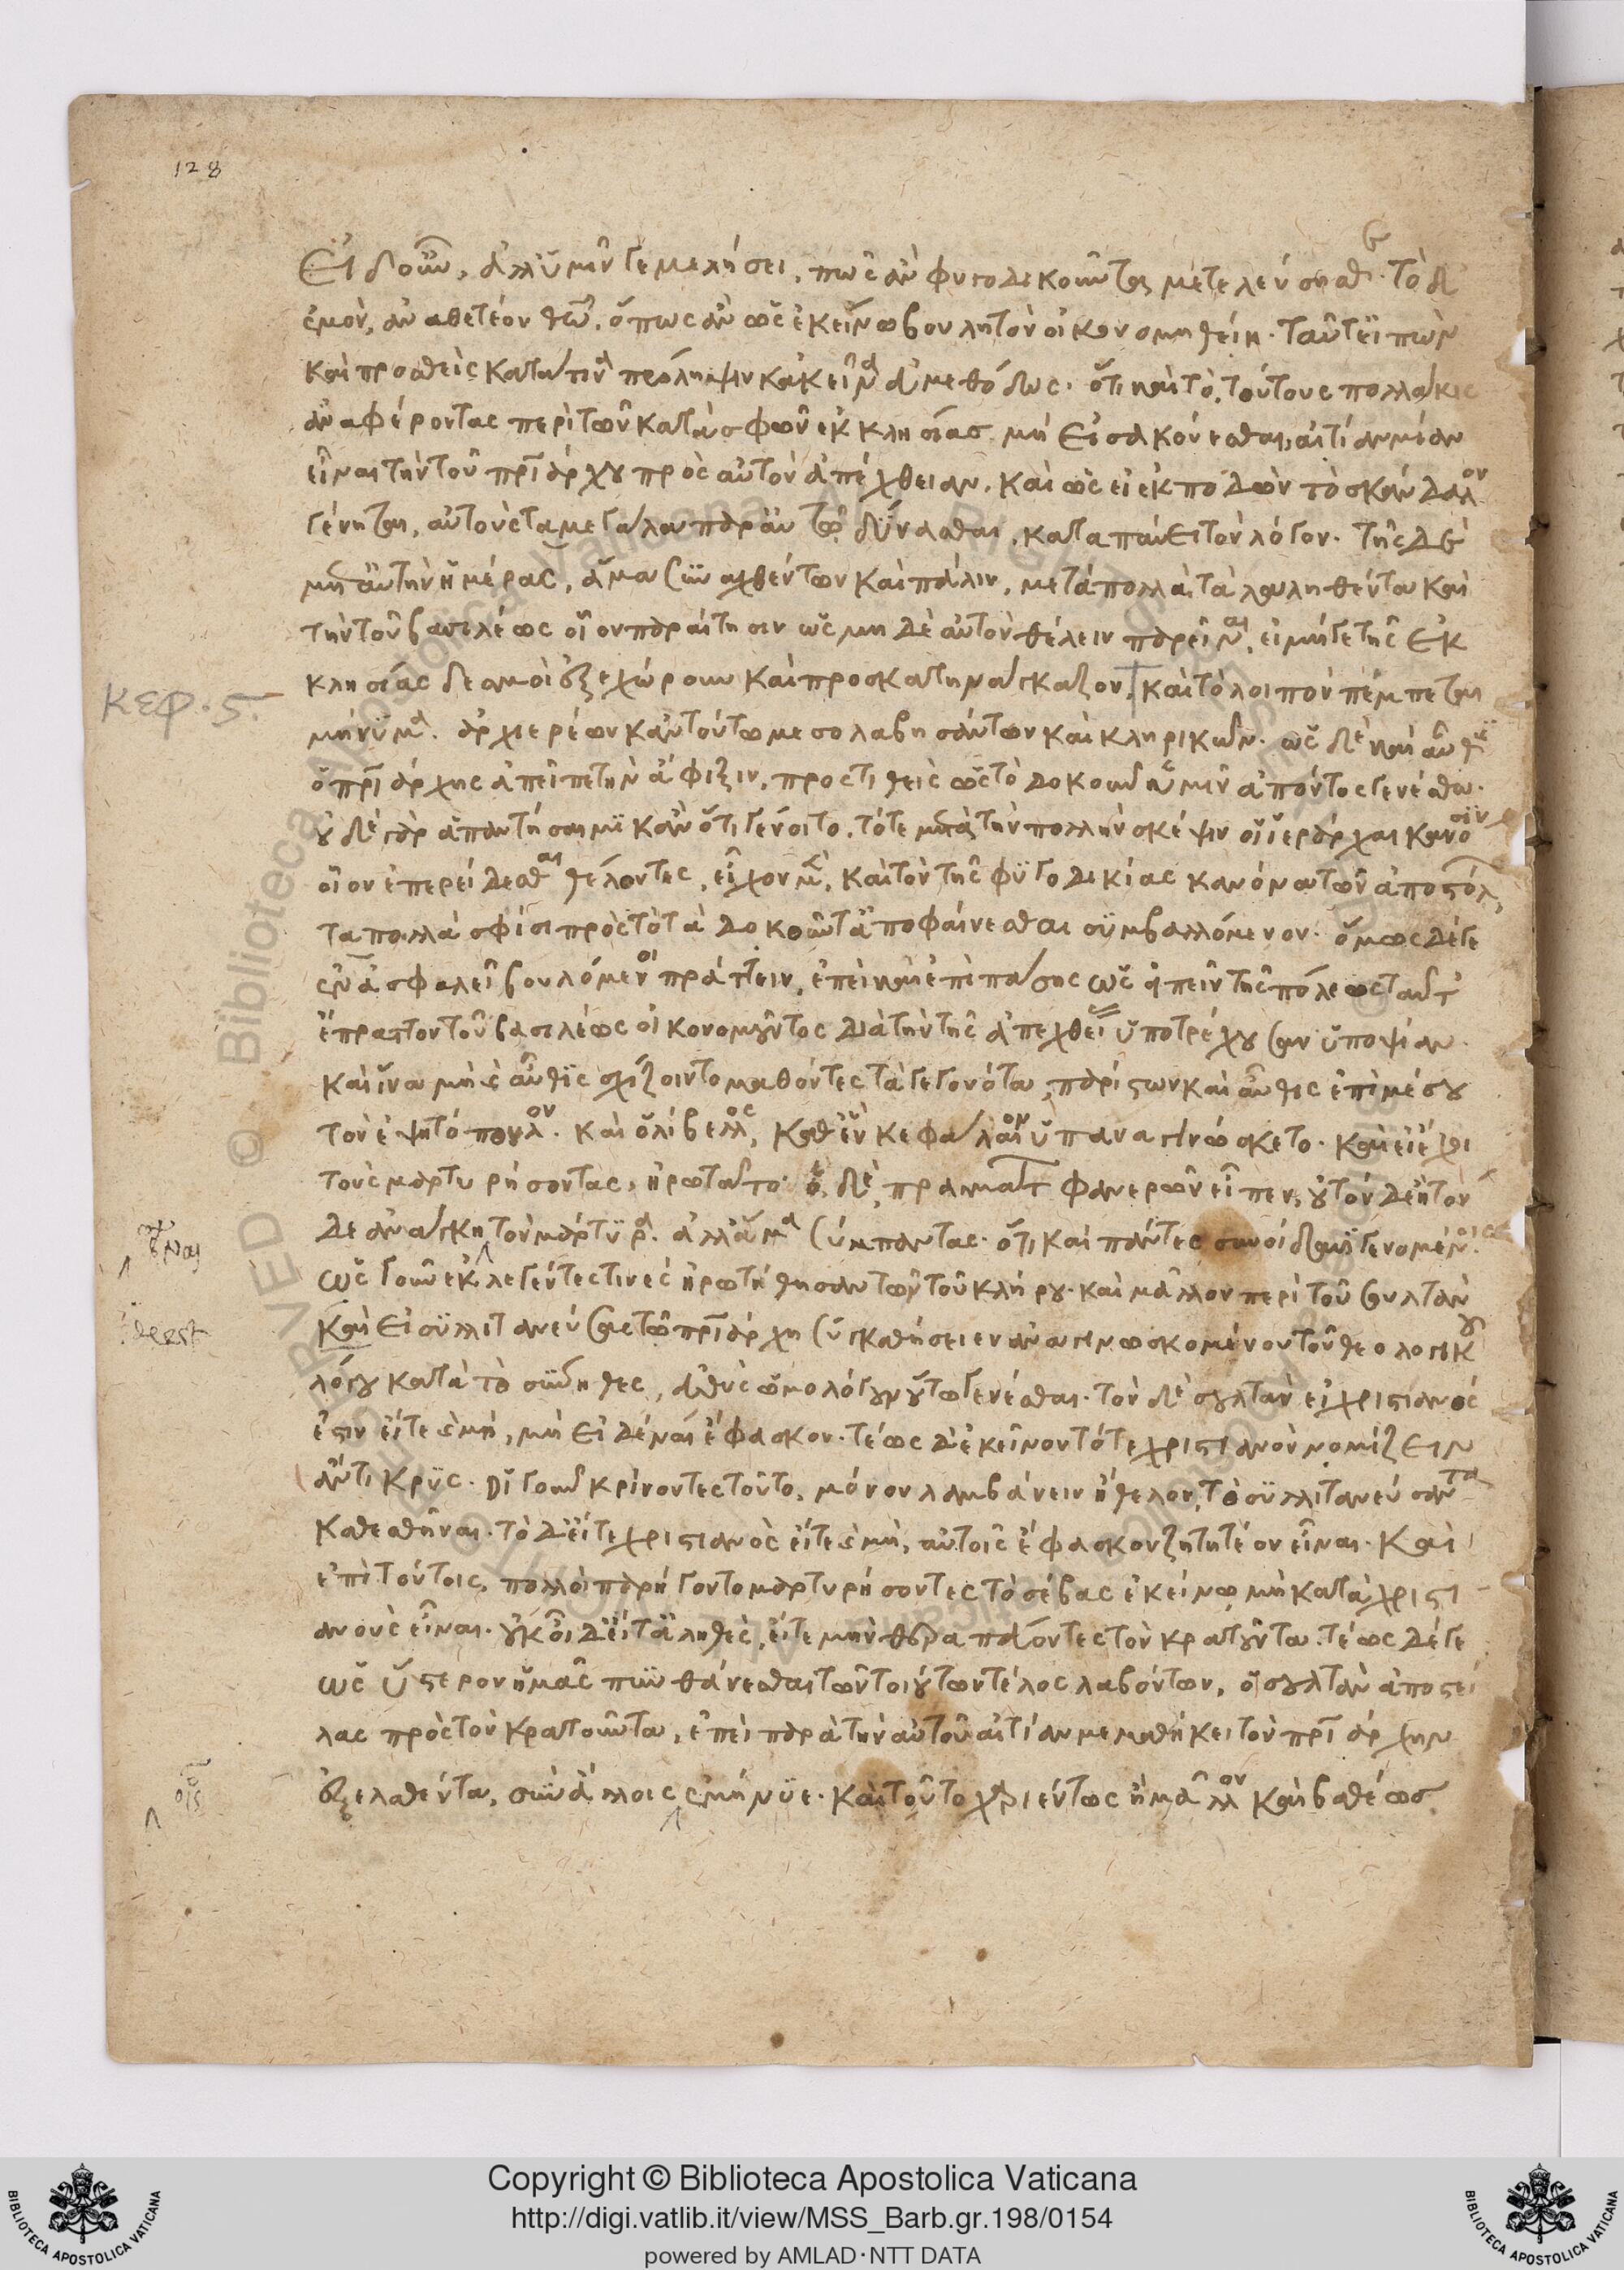 128
εἰ δοῦν, ἀλλ' ὑμῖν γε μελήσει, πῶς ἂν φυγοδικοῦντα μετελεύσησθε. τὸ δ'
ἐμὸν, ἀναθετέον θεῷ, ὅπως ἂν ὡς ἐκείνῳ βουλητὸν οἰκονομηθείη. ταῦτ' εἰπὼν
καὶ προσθεὶς κατά τινα πρόληψιν κἀκεῖνα ἀμεθόδως. ὅτι καὶ τὸ, τούτους πολλάκις
ἀναφέροντας περὶ τῶν κατὰ σφῶν ἐκκλησίας μὴ εἰσακούεσθαι, αἰτίαν μίαν
εἶναι τὴν τοῦ πριάρχου πρὸς αὐτὸν ἀπέχθειαν. καὶ ὡς εἰ ἐκποδὼν τὸ σκάνδαλον
γένηται, αὐτοὺς τὰ μεγάλα παρ' αὐτῷ δύνασθαι, καταπαύει τὸν λόγον. τῆς δὲ
μετ' αὐτὴν ἡμέρας, ἅμα συναχθέντων καὶ πάλιν, μετὰ πολλὰ τὰ λαληθέντα καὶ
τὴν τοῦ βασιλέως οἷον παραίτησιν ὡς μηδὲ αὐτὸν θέλειν παρεῖναι, εἰ μή γε τῆς ἐκ
κλησίας θεσμοὶ ἐξεχώρουν καὶ προσκατηνάγκαζον, καὶ τὸ λοιπὸν πέμπεται
κεφ. ϛ.
μήνυμα. ἀρχιερέων κἀν τούτῳ μεσολαβησάντων καὶ κληρικῶν. ὡς δὲ καὶ αὖθις
ὁ πριάρχης ἀπεῖπε τὴν ἄφιξιν, προστιθεὶς ὡς τὸ δοκοῦν ὑμῖν ἀπόντος γενέσθω.
οὐδὲ γὰρ ἀπαντήσαιμι κἂν ὅτι γένοιτο, τότε μετὰ τὴν πολλὴν σκέψιν οἱ ἱεράρχαι κανόσιν
οἷον ἐπερείδεσθαι θέλοντες, εἶχον μὲν, καὶ τὸν τῆς φυγοδικίας κανόνα τῶν ἀποστόλων,
τὰ πολλά σφισι πρὸς τὸ τὰ δοκοῦντα ἀποφαίνεσθαι συμβαλλόμενον. ὅμως δέ γε
ἐν ἀσφαλεῖ βουλόμενοι πράττειν, ἐπεὶ καὶ ἐπὶ πάσης ὡς εἰπεῖν τῆς πόλεως ταῦτ'
ἐπράττοντο τοῦ βασιλέως οἰκονομοῦντος διὰ τὴν τῆς ἀπεχθείας ὑποτρέχουσαν ὑποψίαν.
καὶ ἵνα μὴ ἐσαῦθις σχίζοιντο μαθόντες τὰ γεγονότα, παρίστων καὶ αὖθις ἐπὶ μέσου
τὸν ἐψητόπουλον. καὶ ὁ λίβελλος, καθ' ἓν κεφάλαιον ὑπανεγινώσκετο. καὶ εἰ ἔχοι
τοὺς μαρτυρήσοντας, ἠρωτᾶτο. ὁ δὲ, πράγματα φανερῶν εἶπεν, οὐ τόνδε ἢ τόν
δε ἀνάγκη τὸν μάρτυρα. ἀλλ' ἅμα σύμπαντας. ὅτι καὶ πάντες σύνοιδεν γενομένοις.
εἶναι
ὡς γοῦν ἐκλεγέντες τινὲς ἠρωτήθησαν τῶν τοῦ κλήρου. καὶ μᾶλλον περὶ τοῦ σουλτὰν
deest
καὶ εἰ συλλιτανεύσας τῷ πριάρχῃ συγκαθήσειεν ἀναγινωσκομένου τοῦ θεολογικοῦ
λόγου κατὰ τὸ σύνηθες, εὐθὺς ὡμολόγουν οὕτω γενέσθαι. τὸν δὲ σουλτὰν εἰ χριστιανός
ἐστιν εἴτε μὴ, μὴ εἰδέναι ἔφασκον. τέως δ' ἐκεῖνον τότε χριστιανὸν νομίζειν
ἄντικρυς. οἱ γοῦν κρίνοντες τοῦτο, μόνον λαμβάνειν ἤθελον, τὸ συλλιτανεύσαντα
καθεσθῆναι. τὸ δ' εἴτε χριστιανὸς εἴτε μὴ, αὐτοῖς ἔφασκον ζητητέον εἶναι. καὶ
ἐπὶ τούτοις, πολλοὶ παρήγοντο μαρτυρήσοντες τὸ σέβας ἐκείνῳ μὴ κατὰ χριστι
ανοὺς εἶναι. οὐκ οἶδ' εἴτ' ἀληθὲς, εἴτε μὴν θεραπεύοντες τὸν κρατοῦντα. τέως δέ γε
ὡς ὕστερον ἡμᾶς πυνθάνεσθαι τῶν τοιούτων τέλος λαβόντων, ὁ σουλτὰν ἀποστεί
λας πρὸς τὸν κρατοῦντα, ἐπεὶ παρὰ τὴν αὐτοῦ αἰτίαν μεμαθήκει τὸν πριάρχην
ἐξελαθέντα, σὺν ἄλλοις ἐμήνυε. καὶ τοῦτο χαριέντως ἢ μᾶλλον καὶ βαθέως
Copyright © Biblioteca Apostolica Vaticana
http://digi.vatlib.it/view/MSS_Barb.gr.198/0154
powered by AMLAD·NTT DATA
BIBLIOTECA APOSTOLICA VATICANA
BIBLIOTECA APOSTOLICA VATICANA